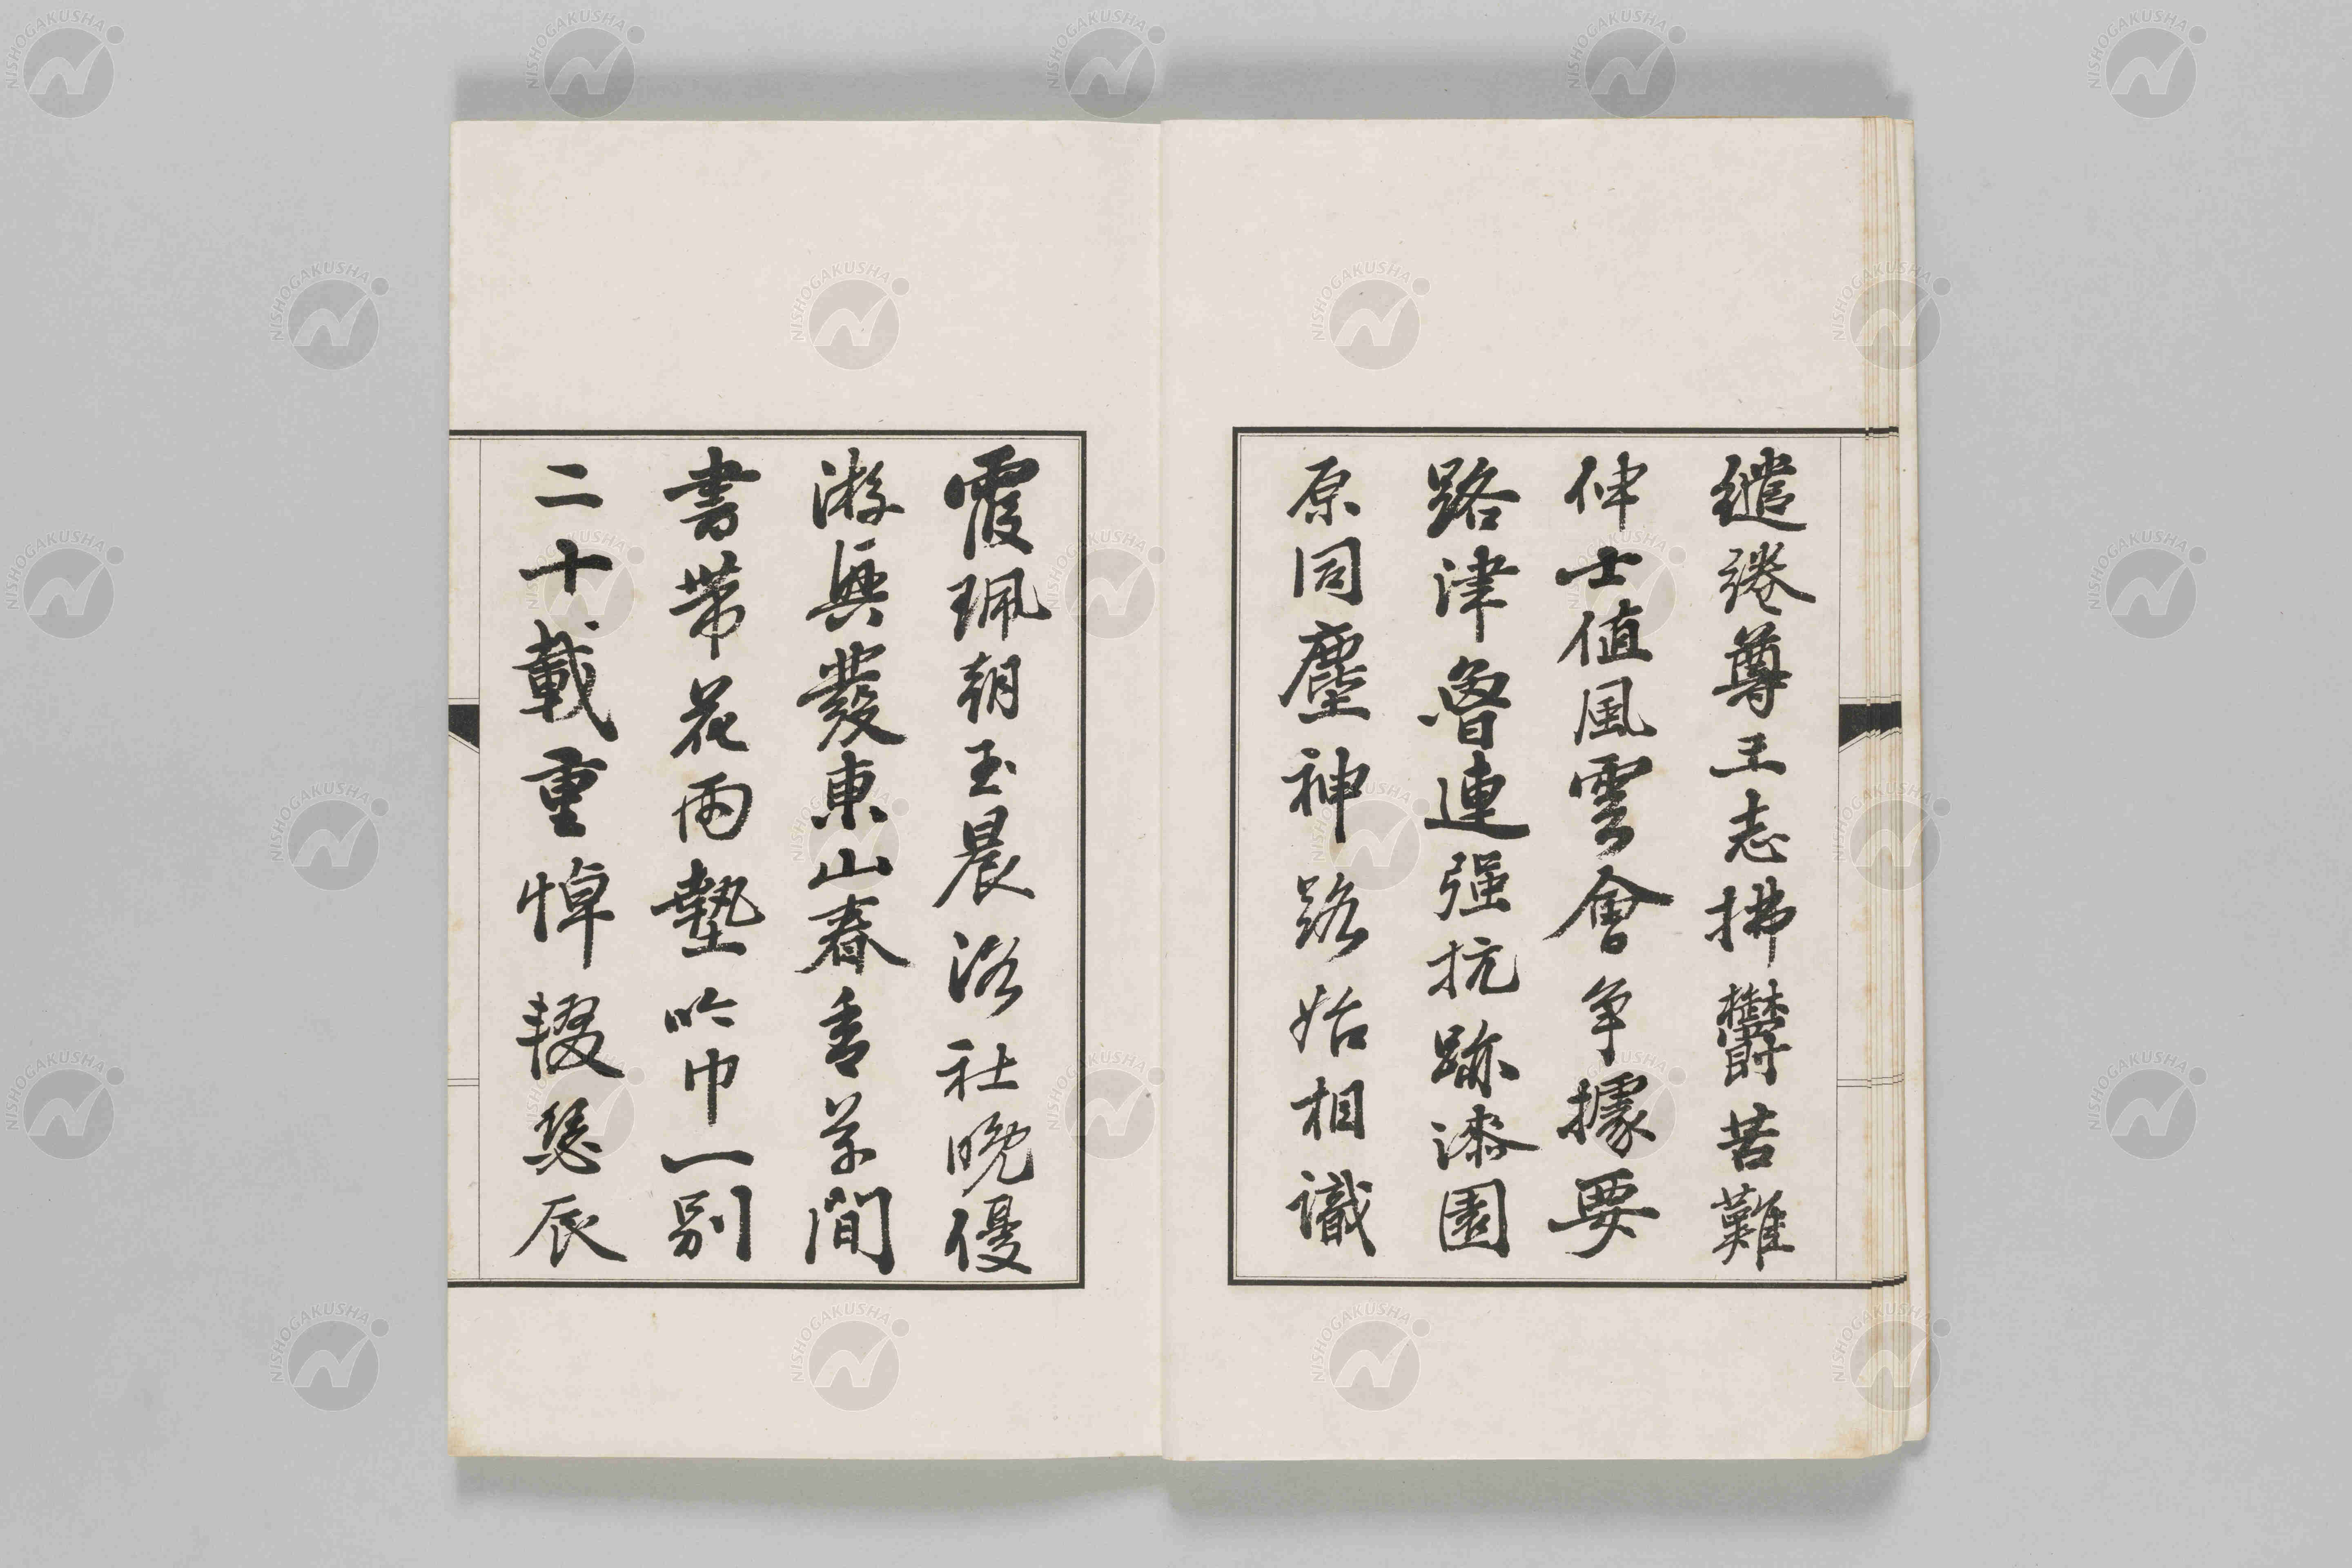 繾綣尊王志拂鬱苦難
伸士值風雲會爭據要
路津魯連强抗跡漆園
原同塵神路始相識
霞珮朝玉晨洛社晚優
游興發東山春書草間
書帶花雨墊吟巾一別
二十載重悼輟瑟辰
NISHOGAKUSHA